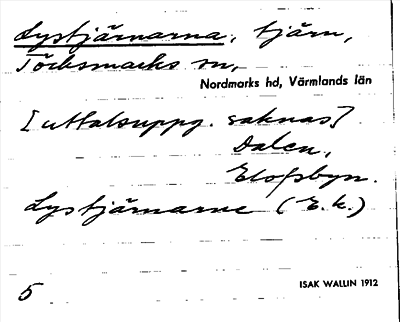 Lystjärnarna, tjärn,
Töcksmarks sn,
Nordmarks hd, Värmlands län
[uttalsuppg. saknas]
Dalen,
Elofsbyn.
Lystjärnarne (E.k.)
5
ISAK WALLIN 1912